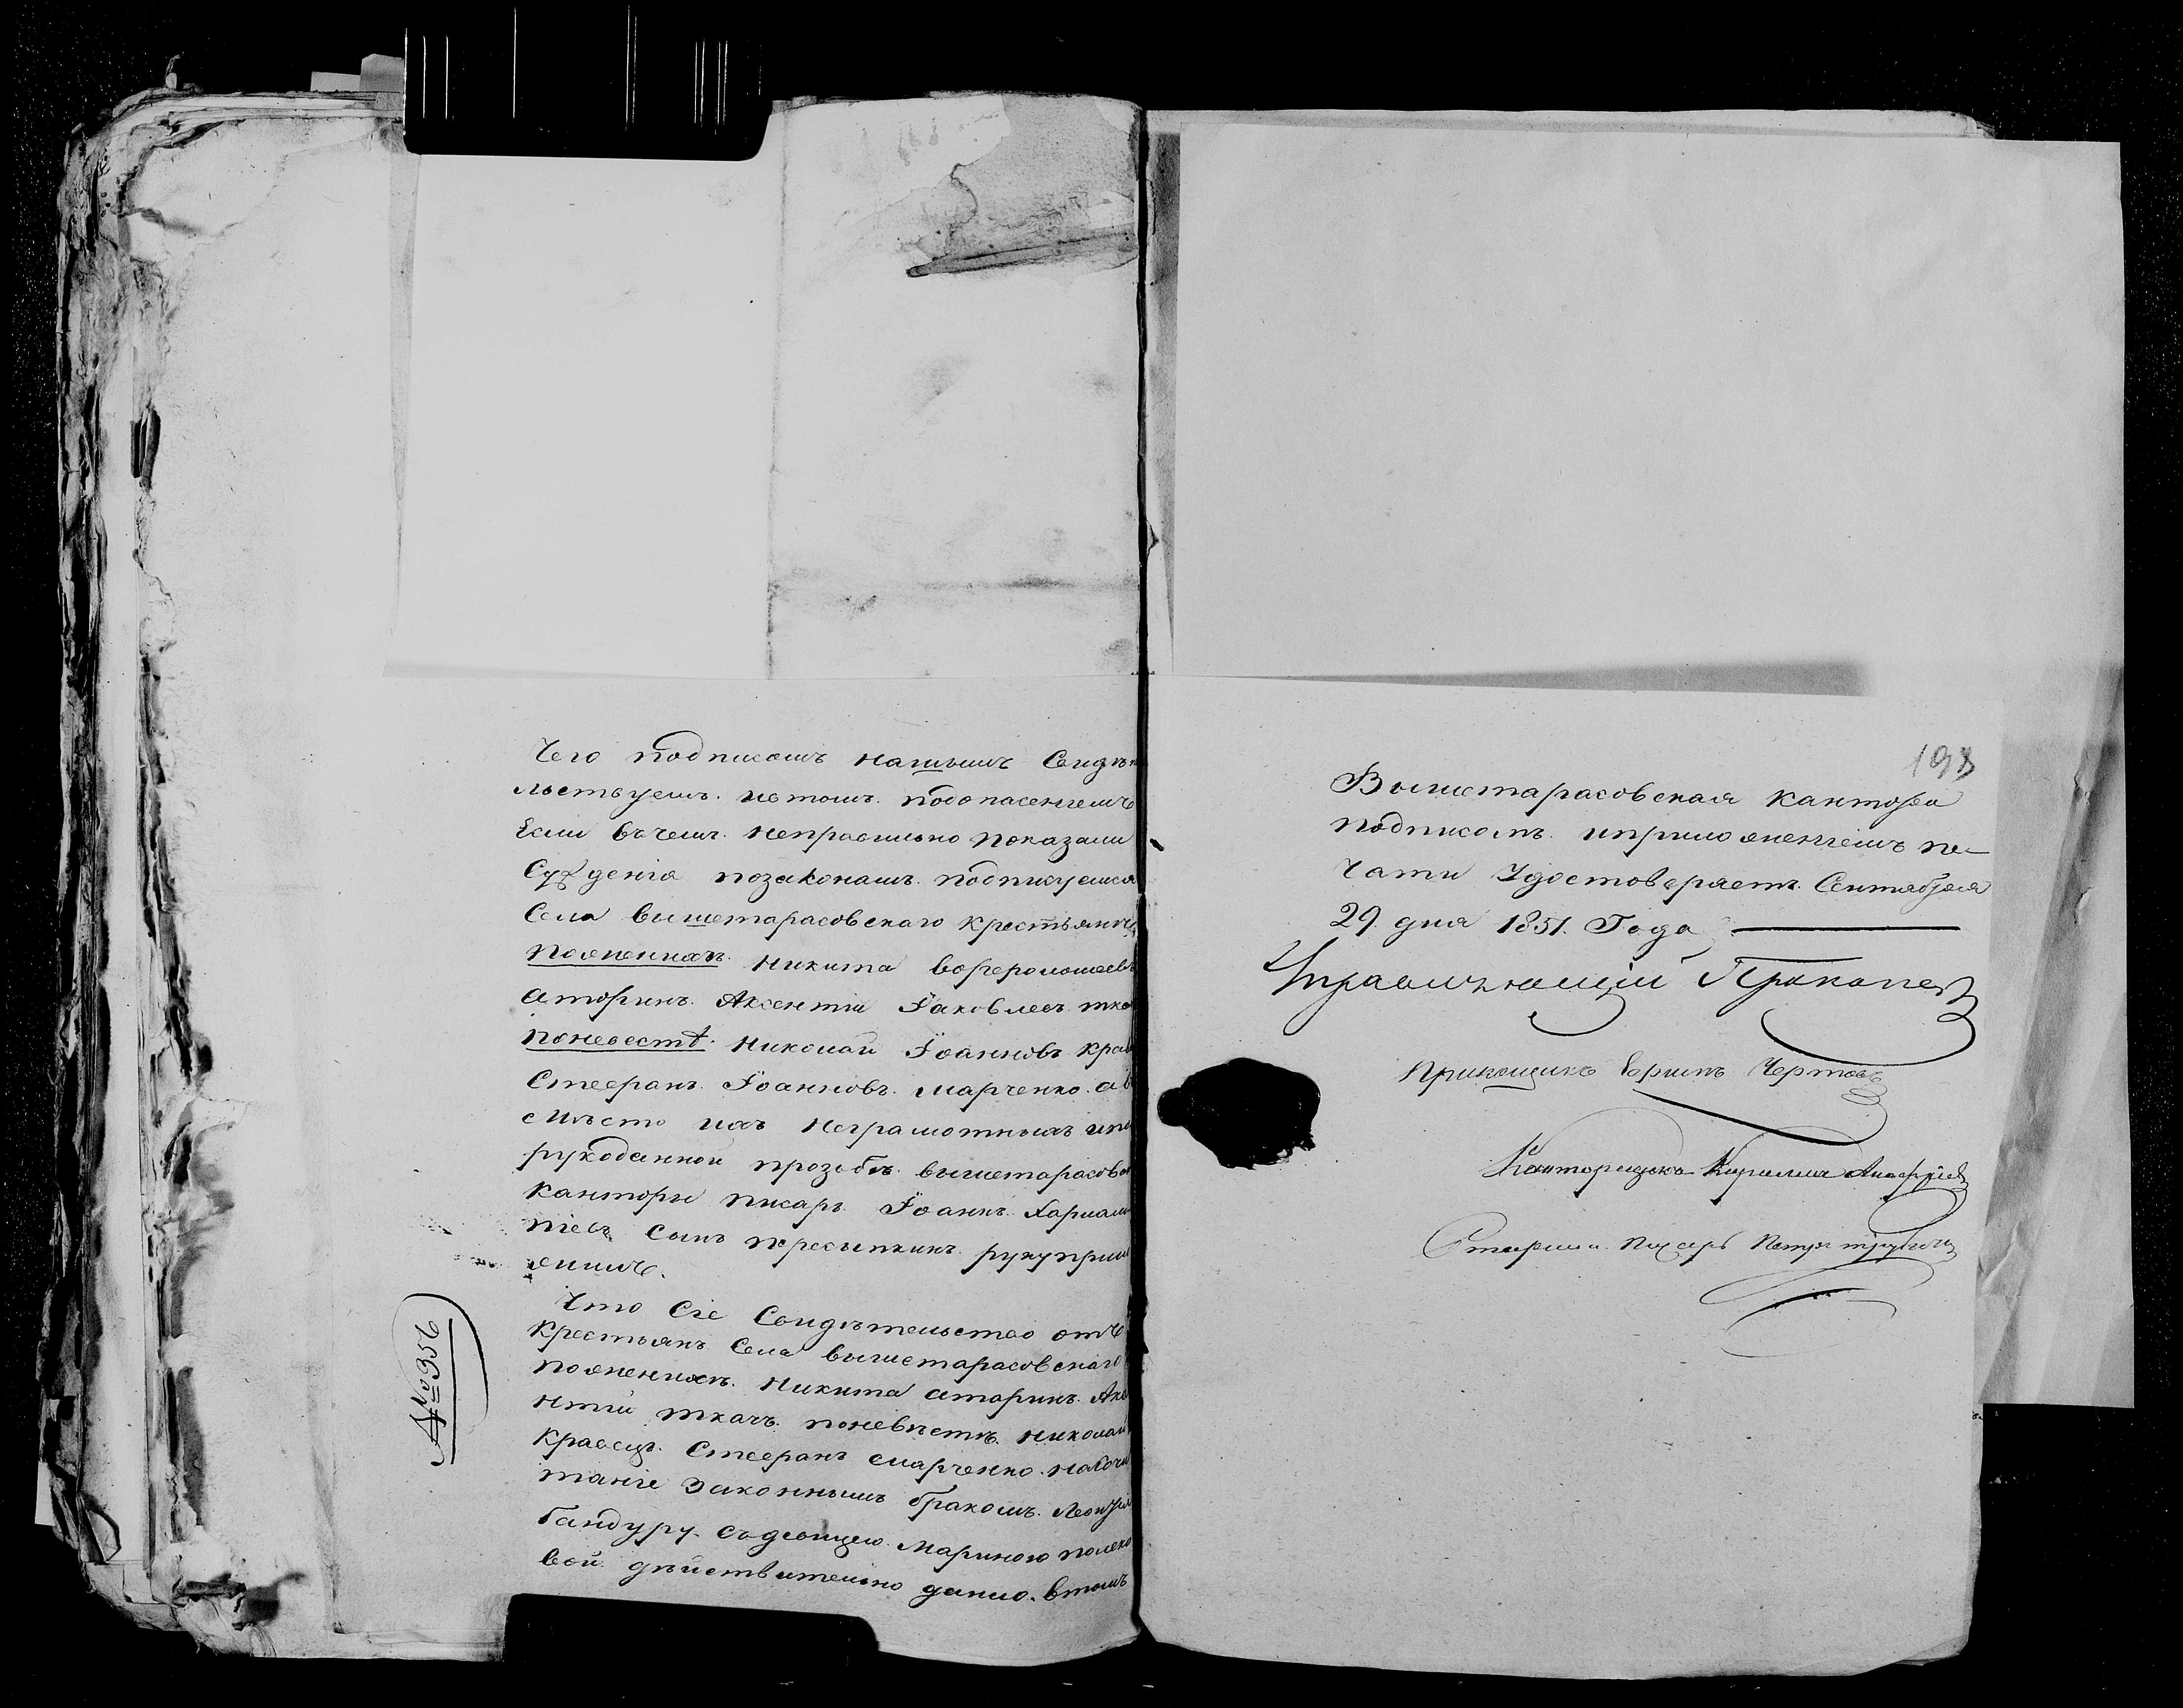 чего подписомъ нашимъ Свидѣте
льствуемъ. ивтомъ. подопасениемъ
Если вчемъ. неправильно показали
Суждения позаконамъ. подписуемся
Села вышетарасовскаго крестьянъ
поженихъ. никита
аторинъ. Аксентiй Iаковлевъ тка
поневестѣ. николай Iоанновъ краве
Стефранъ. Iоанновъ. марченко. а в
смѣсто ихъ неграмотныхъ ипо
рукоданной прозьбѣ. вышетарасовск
канторы писарь. Iоаннъ. Харлам
пiевъ Сынъ пересыпкинъ. рукуприл
ожилъ.
№ 356
Что Сiе Свидѣтельство отъ
крестьянъ Села вышетарасовскаго
поженихѣ. никита аторинъ. Аксе
нтий ткачъ. поневѣстѣ. николай
кравецъ. Стефранъ марченко. насоче
танiе Законнымъ бракомъ. Леонтiя
бандуру. съдѣвицею. мариною полеко
вой. дѣйствительно данно. втомъ
198
Вышетарасовская кантора
подписомъ. иприложениемъ пе-
чати Удостоверяетъ. Сентября
29. дня 1851. Года
Управляющiй Прокопев
Прикащикъ Чертовъ
Канторщикъ Кирилла
Старшiй Писарь Петръ